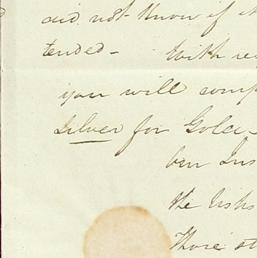 did not know if it
tended- With re
you will comp
Silver for Gold-
ber Ins
the
those